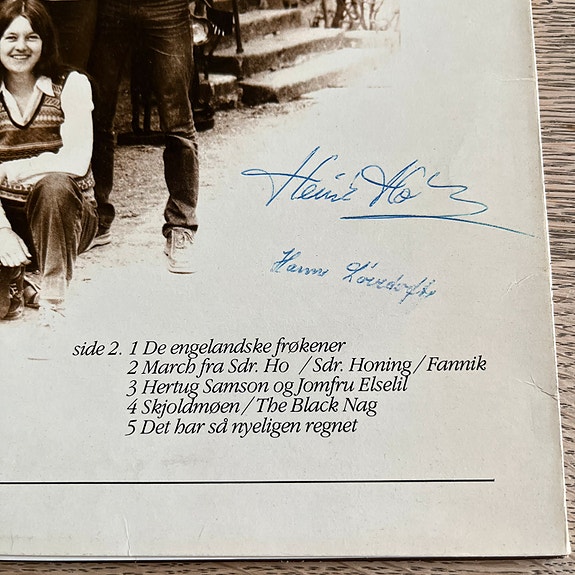 side 2. 1 De engelandske frøkener
2 March fra Sdr. Ho / Sdr. Honing / Fannik
3 Hertug Samson og Jomfru Elselil
4 Skjoldmøen / The Black Nag
5 Det har så nyeligen regnet